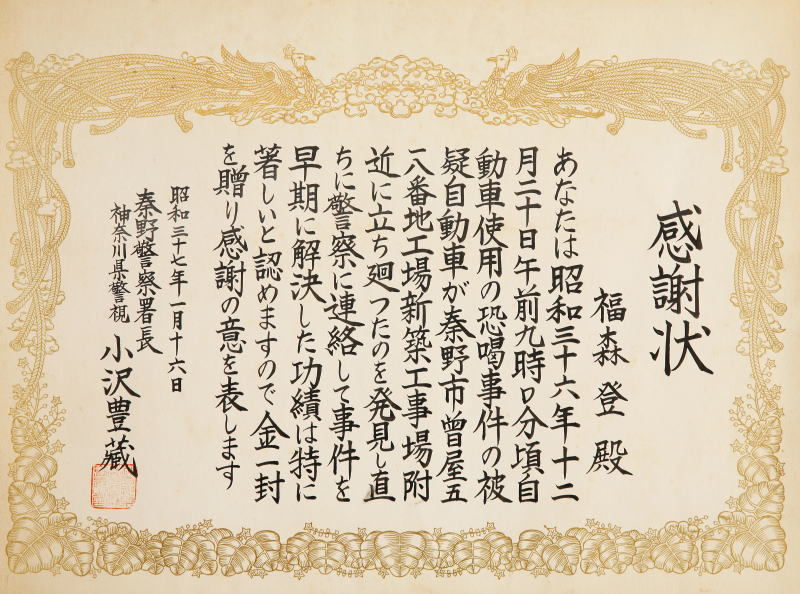 感謝状
福森登殿
あなたは昭和三十六年十二
月二十日午前九時〇分頃自
動車使用の恐喝事件の被
疑自動車が秦野市曽屋五
八番地工場新築工事場附
近に立ち廻つたのを発見し直
ちに警察に連絡して事件を
早期に解決した功績は特に
著しいと認めますので金一封
を贈り感謝の意を表します
昭和三十七年一月十六日
秦野警察署長
神奈川県警視
小沢豊蔵